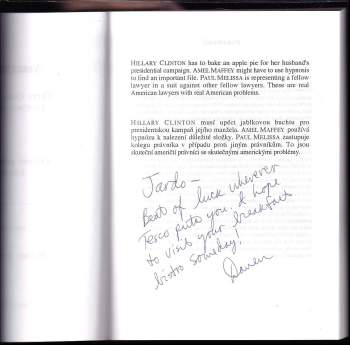 HILLARY CLINTON has to bake an apple pie for her husband's
presidential campaign. AMEL MAFFEY might have to use hypnosis
to find an important file. PAUL MELISSA is representing a fellow
lawyer in a suit against other fellow lawyers. These are real
American lawyers with real American problems.
HILLARY CLINTON musí upéct jablkovou buchtu pro
presidentskou kampaň jejího manžela. AMEL MAFFEY používá
hypnózu k nalezení důležité složky. PAUL MELISSA zastupuje
kolegu právníka v případu proti jiným právníkům. To jsou
skuteční američtí právníci se skutečnými americkými problémy.
Jardo -
Best of luck wherever
Tesco puts you. I hope
to visit your breakfast
bistro someday!